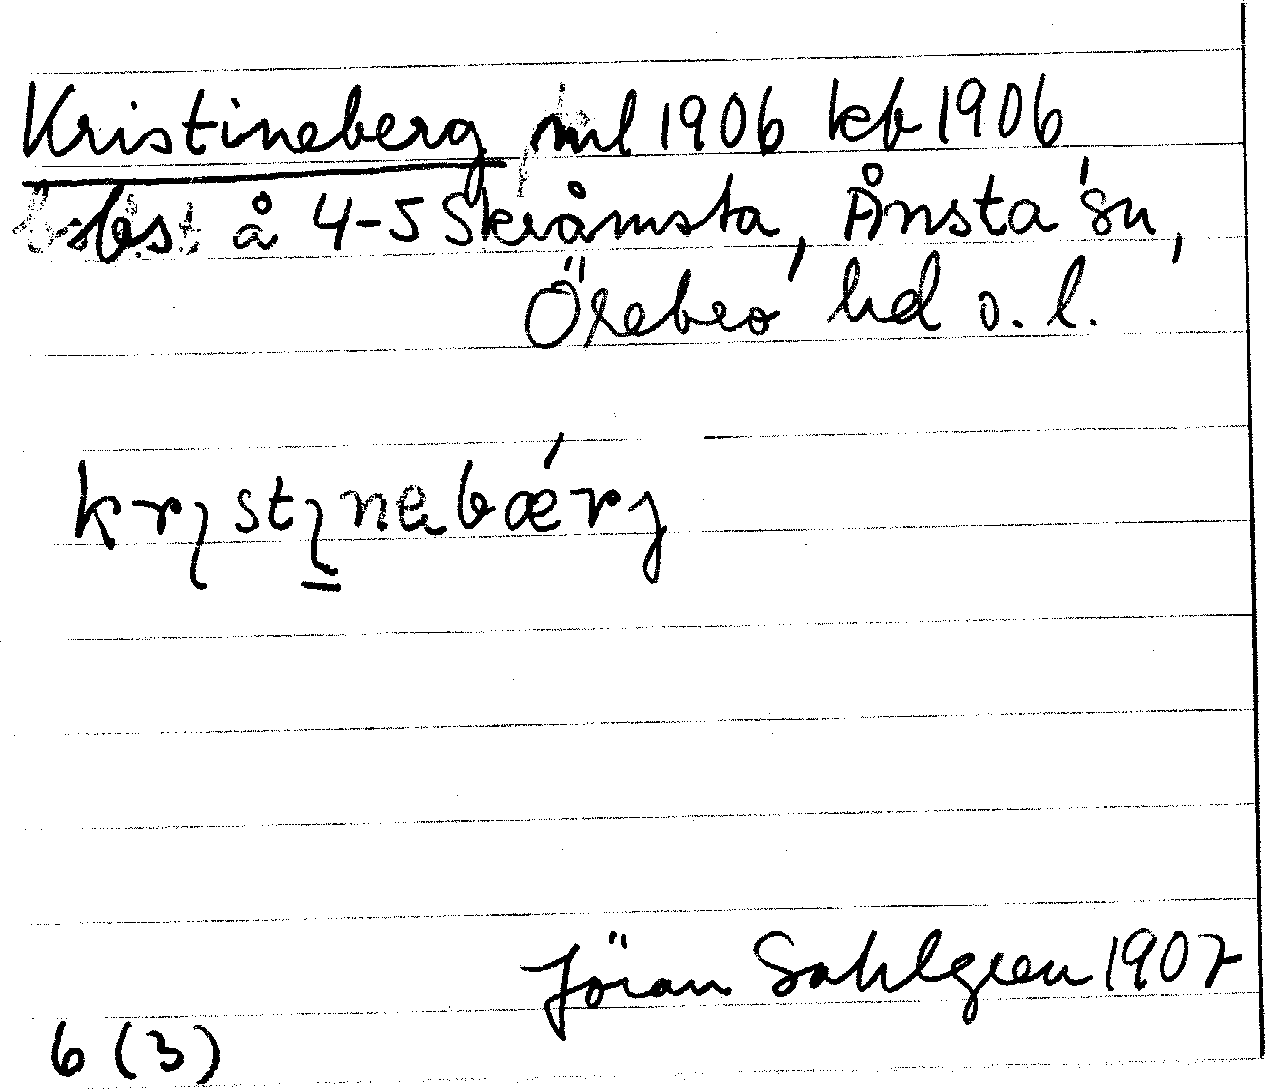 Kristineberg ml 1906 kb 1906
bst å 4-5 Skråmsta, Ånsta sn,
Örebro hd o. l.
krɩstɩnebærj
Jöran Sahlgren 1907
6 (3)